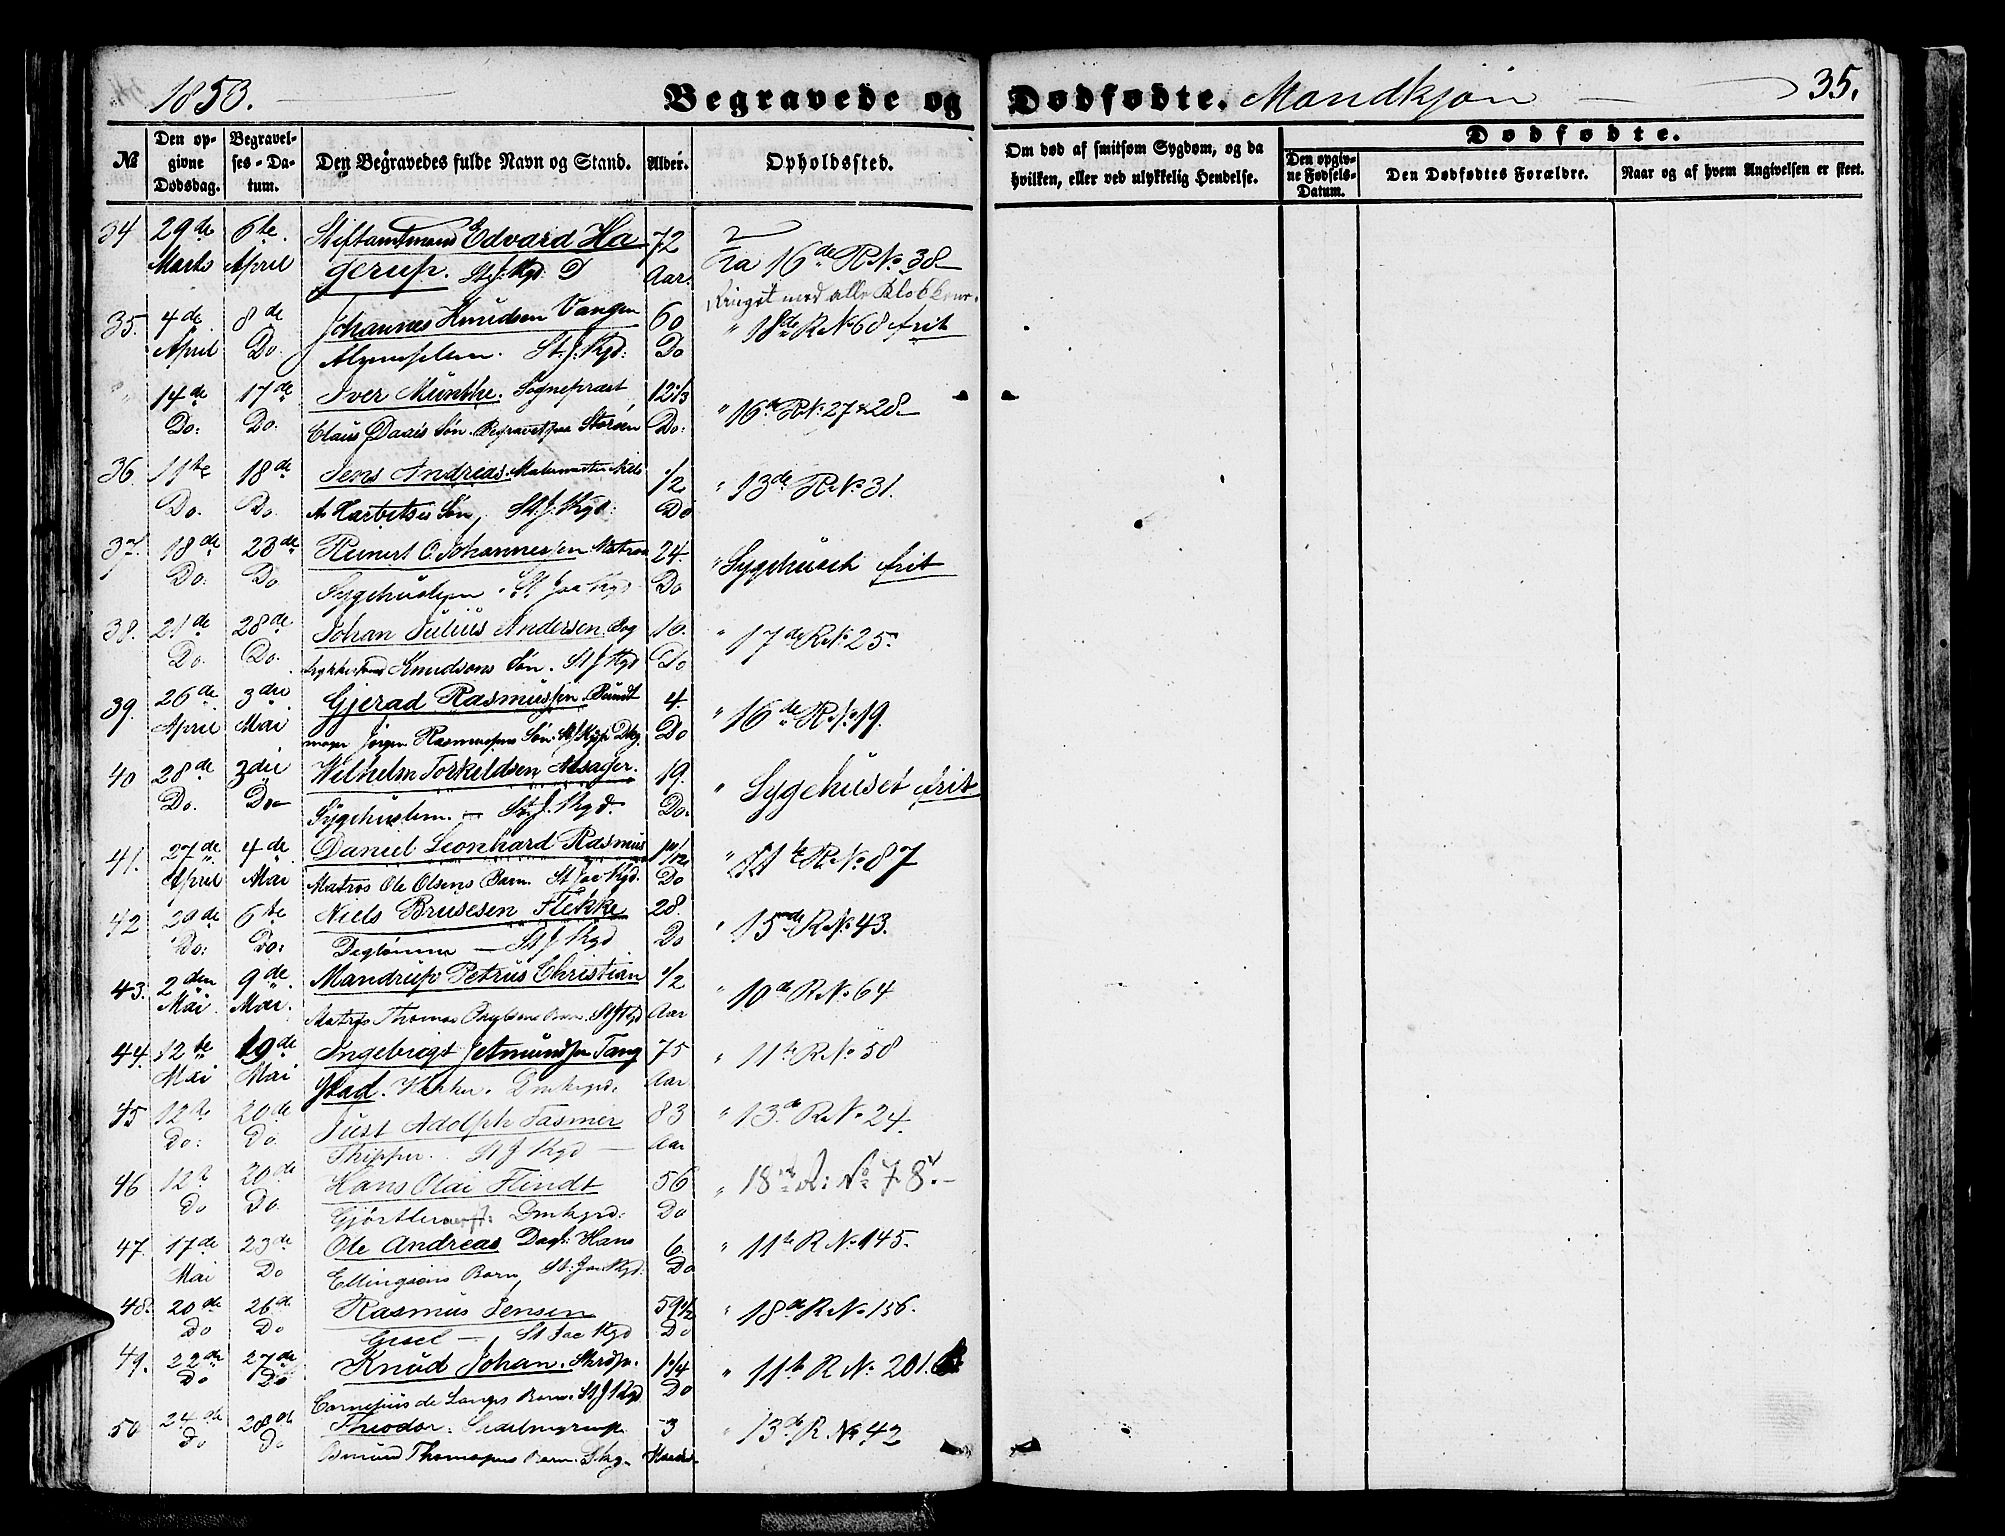 1853. Begravede og Dødfødte. Mandkjøn 35.
Dødfødte.
№ Den opgivne Dødsdag. Begravelses-Datum. Den Begravedes fulde Navn og Stand. Alder. Opholdssted. Om død af smitsom Sygdom, og da hvilken, eller ved ulykkelig Hendelse. Den opgivne Fødsels-Datum. Den Dødfødtes Forældre. Naar og af hvem Angivelsen er skeet.
34 29de 6te Stiftamtmand Edvard Ha- 72
Marts April gerup. St J. Kgd: D Aar. 16de R No 38
Ringet med alle Klokkene.
35. 4de 8de Johannes Knudsen Vangen 60 " 18de R No 68 frit
April Do. St. J. Kgd: Do
" 14de 17de Iver Munthe. Sognepræst 12 1/3 " 16de R No 27 & 28
Do: Do. Claus Daaes Søn. Begravet paa Do:
36. 11te 18de Jens Andreas. Niels 1/2 " 13de R No 31.
Do. Do. A Harbitses Søn, St. J. Kgd: Do
37. 18de 23de Reinert O. Johannessen Matros 24. " Sygehuset frit
Do. Do Sygehuslem. St Jac Kgd Do
38. 21de 28de Johan Julius Andersen Bog 16. " 17de R No 25.
Do. Do. Knudsons Søn. St J Kgd Do
39. 26de 3die Gjerad Rasmussen. Bundt 4. " 16de R No 19.
April Mai mager Jørgen Rasmussens Søn. Do
40 28de 3die Wilhelm Torkeldsen Alsager. 19. " Sygehuset frit
Do. Do Sygehuslem. — St. J. Kgd. Do.
41. 27de 4de Daniel Leonhard Rasmus 1 10/12 " R No 87
April Mai Matros Ole Olsens Barn. St Jac Kgd. Do
42 29de 6te Niels Brusesen Flekke 28. " 15de R No 43.
Do: Do: — St J Kgd Do
43. 2den 9de Mandrup Petrus Christian 1/2 " 10de R No 64
Mai Mai. Matros Thomas Barn. St J Kgd Aar
44. 12te 19de Ingebrigt Tang 75 " 11te R No 58
Mai Mai Dmkgrd. Aar
45 12te 20de Just Adolph Fasmer 83 " 13de R No 24.
Do: Do. Skipper. St J Kgd — Aar
46 12te 20de Hans Olai Flindt 56 " 18de R: No 78.
Do Do. Gjørtler Dmkgrd: Do
47. 17de 23de Ole Andreas Dagk: Hans 6. " 11te R No 145.
Mai Do Ellingsens Barn, St: Jac Kgd: Do
48. 20de 26de Rasmus Jensen 59 1/2 " 18de R No 156.
Do Do — St Jac Kgd Do
49. 22de 27de Knud Johan. 1 1/4 " 11te R No 201.
Do Do Cornelius de Langes Barn. St J Kgd Do
50 24de 28de Theodor. 3 " 13de R. No 42
Do Do Osmund Thomassens Barn.